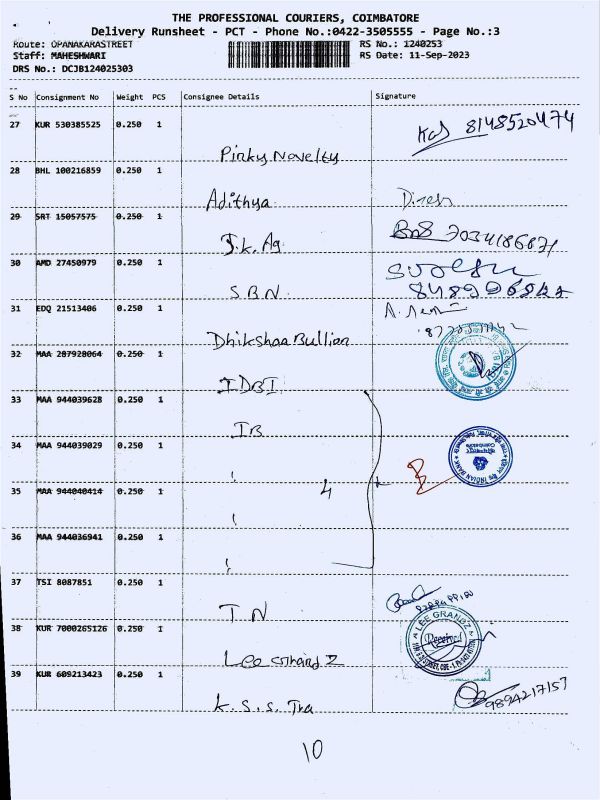 THE PROFESSIONAL COURIERS, COIMBATORE
Delivery Runsheet - PCT - Phone No.:0422-3505555 - Page No.:3
Route: OPANAKARASTREET RS No.: 1240253
Staff: MAHESHWARI RS Date: 11-Sep-2023
DRS No.: DCJB124025303
S No Consignment No Weight PCS Consignee Details Signature
27 KUR 530385525 0.250 1 8148520474
Pinky Novelty
28 BHL 100216859 0.250 1
Adithya Dinesh
29 SRT 15057575 0.250 1
J.K. Ag 7034186871
30 AMD 27450979 0.250 1
S.B.N.
31 EDQ 21513406 0.250 1
Dhikshaa Bullian
32 MAA 287928064 0.250 1
IDBI
33 MAA 944039628 0.250 1
IB
34 MAA 944039029 0.250 1
INDIAN BANK
Coimbatore
35 MAA 944040414 0.250 1 4
36 MAA 944036941 0.250 1
37 TSI 8087851 0.250 1
T N
LEE GRANDZ
Received
38 KUR 7000265126 0.250 1
Lee Grand Z
39 KUR 609213423 0.250 1
9894217157
K.S.S. Tra
10